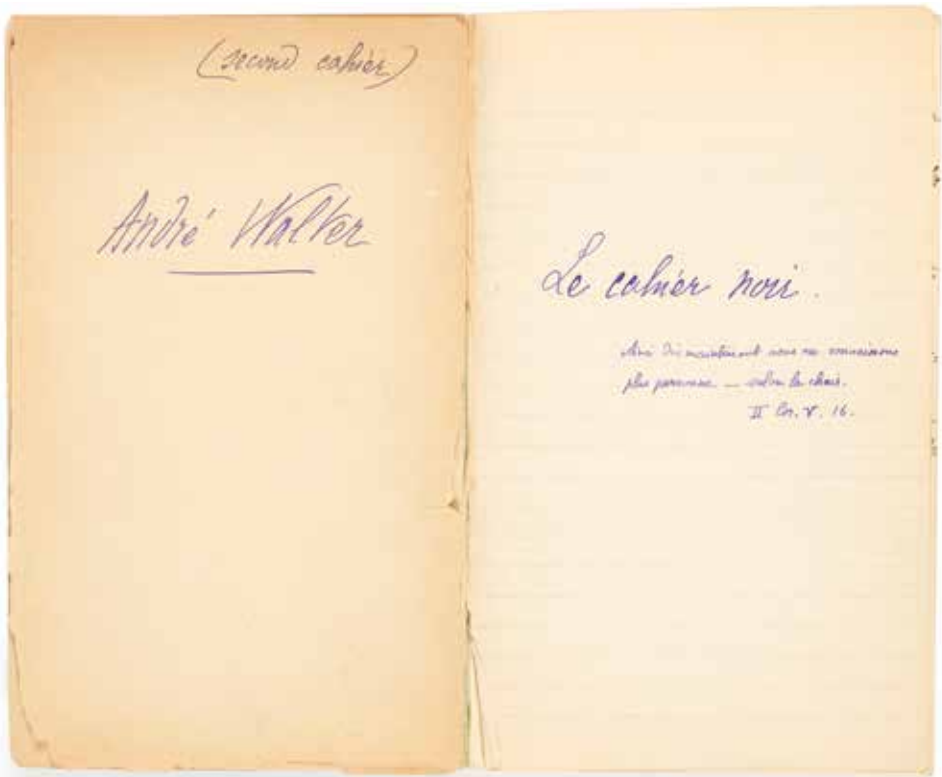 (second cahier)
André Walter
Le cahier noir.
Ainsi dès maintenant nous ne connaissons
plus personne — selon la chair.
II Cor. V. 16.